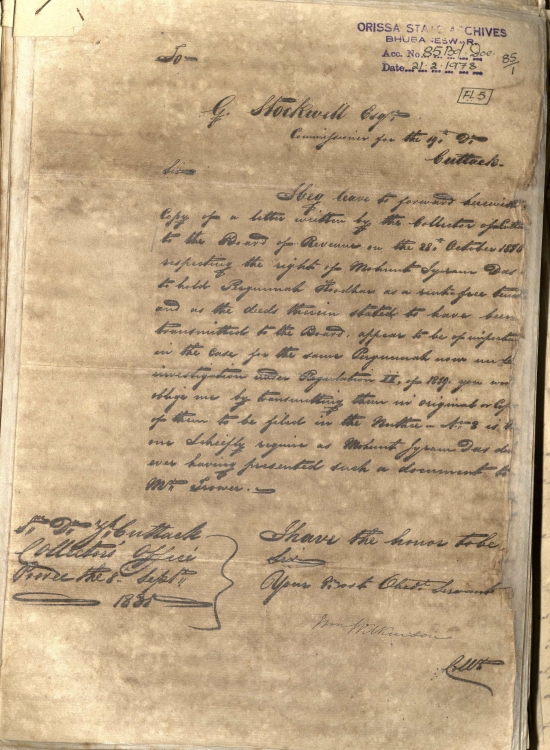 ORISSA STATE ARCHIVES
BHUBANESWAR
Acc. No. 85 Bd. Doc
Date 21-2-1973
85/1
Fl 5
To
G. Stockwell Esqr.
Commissioner for the 19th Dn.
Cuttack
Sir
I beg leave to forward herewith
Copy of a letter written by the Collector of
to the Board of Revenue on the 28th October
respecting the right of Mohunt Syram Das
to hold Pergunnah as a rent free
and as the deeds therein stated to have been
transmitted to the Board, appear to be of
in the Case for the same Pergunnah now
investigation under Regulation II, of 1819. you
oblige me by transmitting them in original or Copy
of them to be filed in the Nuthee - No. 3 is
one I chiefly require as Mohunt Syram Das
ever having presented such a document to
Mr. Trower.
Cuttack
Collectors Office
Pooree the 8. Septr.
1835
I have the honor to be
Sir
Your Most Obedt. Servant
Wm Wilkinson
Collr.